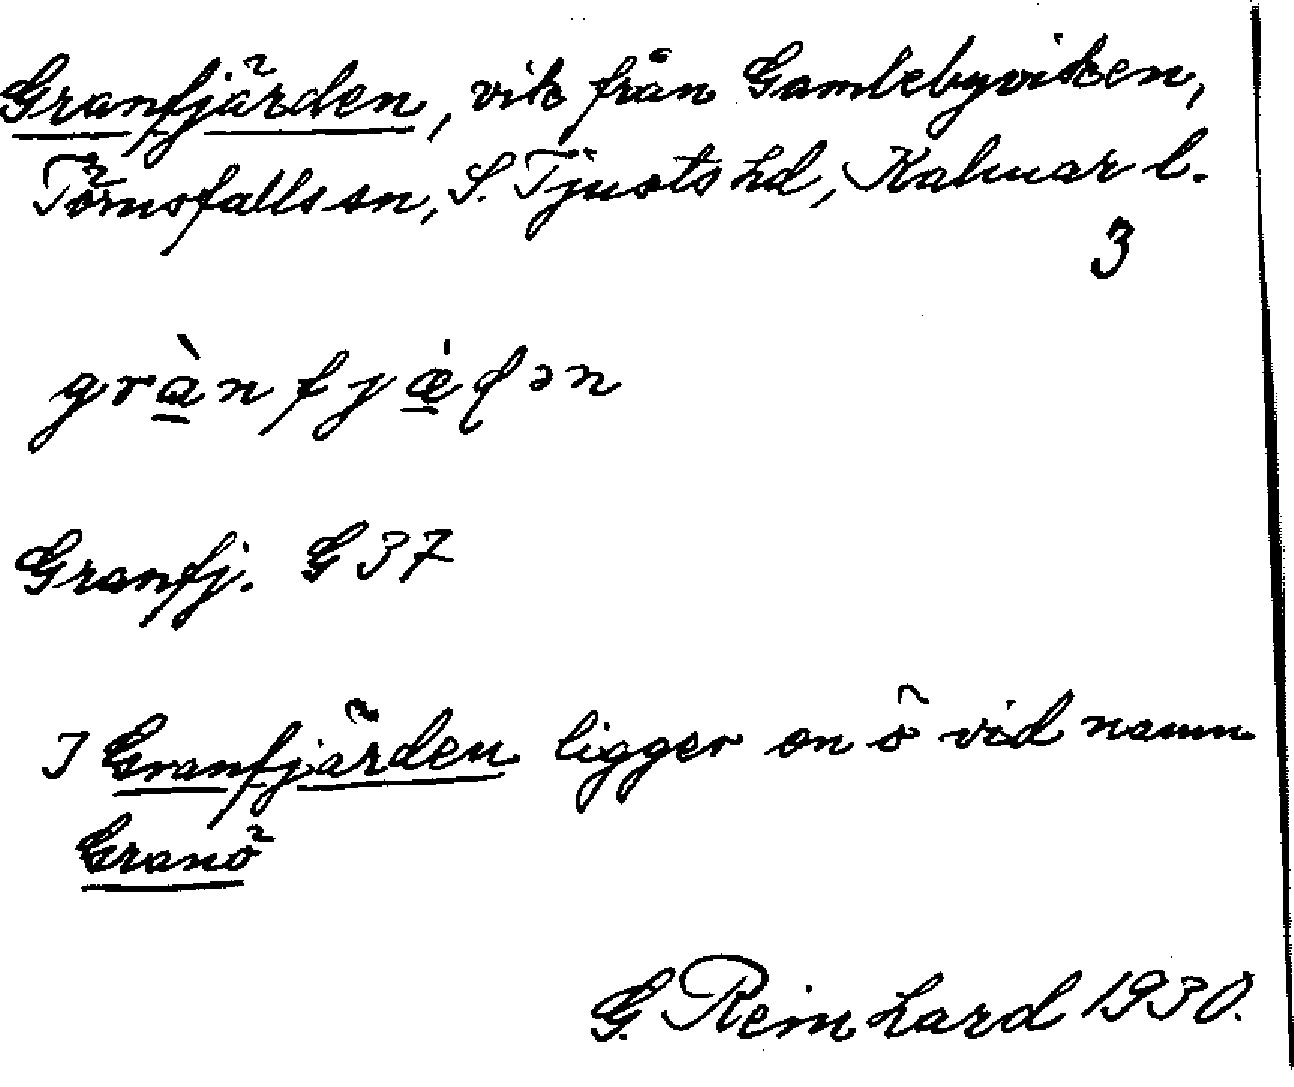 Granfjärden, vik från Gamlebyviken,
Törnsfalls sn, S. Tjusts hd, Kalmar l.
3
grà̲nfjæ̲̇ḍən
Granfj. G 37
I Granfjärden ligger en ö vid namn
Granö
G. Reinhard 1930.